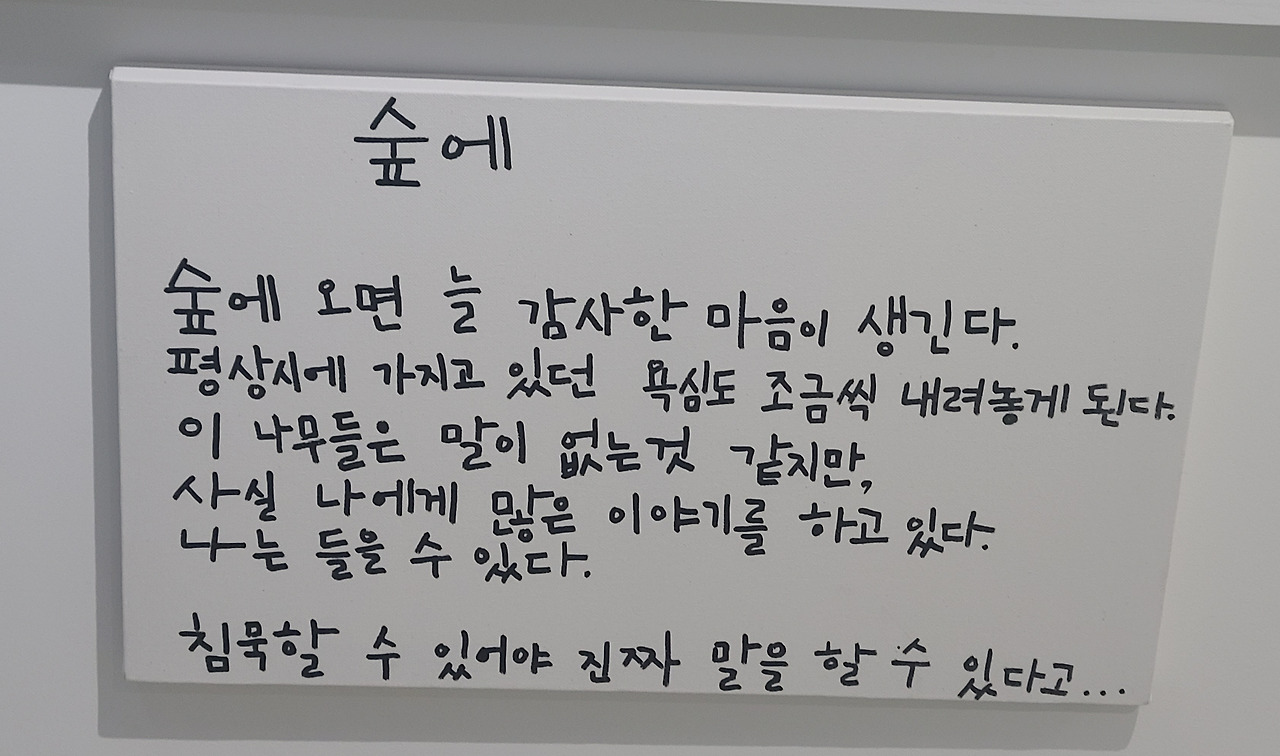 숲에
숲에 오면 늘 감사한 마음이 생긴다.
평상시에 가지고 있던 욕심도 조금씩 내려놓게 된다.
이 나무들은 말이 없는것 같지만,
사실 나에게 많은 이야기를 하고 있다.
나는 들을 수 있다.
침묵할 수 있어야 진짜 말을 할 수 있다고...